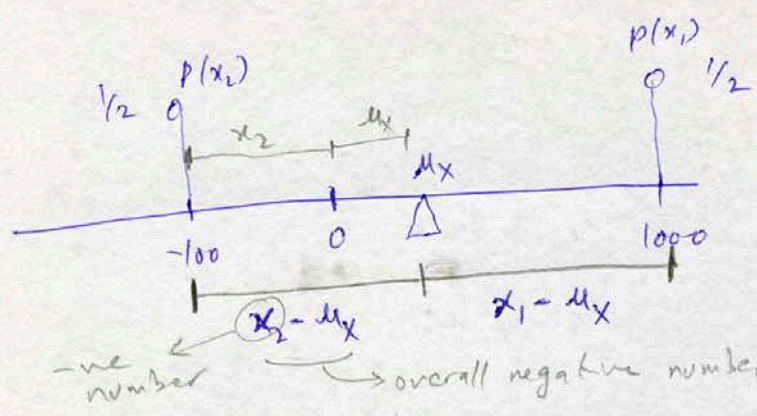 p(x₁)
p(x₂)
1/2
1/2
x₂
μₓ
μₓ
-100
0
1000
x₂ - μₓ
x₁ - μₓ
-ve number
overall negative number